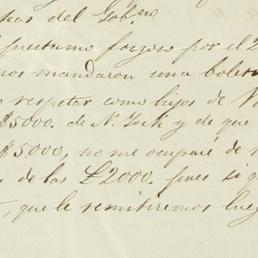 has del Gobno
prestamo forzoso por el 2
nos mandaron una boleta
respetar como hijos de V
$5000. de N. York y de que
$5,000, no me ocuparé de
de las £2000. pues si q
, que le remitiremos lueg